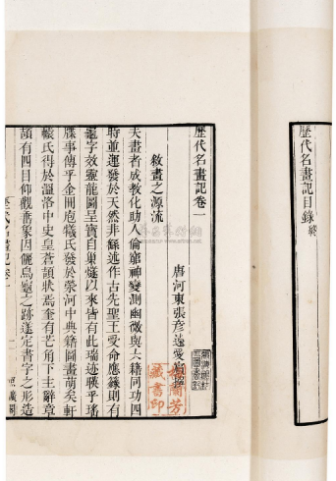 歷代名畫記目錄終
歷代名畫記卷一
唐河東張彥遠愛賓撰
敘畫之源流
夫畫者成教化助人倫窮神變測幽微與六籍同功四
時並運發於天然非繇述作古先聖王受命應籙則有
龜字效靈龍圖呈寶自巢燧以來皆有此瑞迹暎乎瑤
牒事傳乎金冊庖犧氏發於滎河中典籍圖畫萌矣軒
轅氏得於溫洛中史皇蒼頡狀焉奎有芒角下主辭章
頡有四目仰觀垂象因儷鳥龜之跡遂定書字之形造
歷代名畫記卷一
藏書印